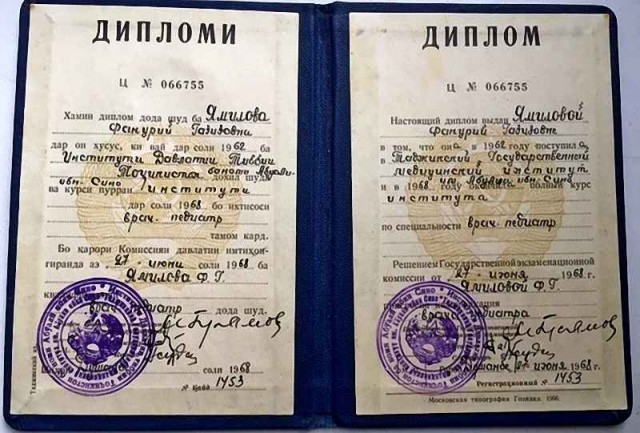 ДИПЛОМИ
Ц № 066755
Хамин диплом дода шуд ба Ямилова
Фанурий Гадидовна
дар он хусус, ки вай дар соли 1962 ба
Институти Давлатии Тиббии
Тоҷикистон ба номи Абуали
ибн-Сино дохил шуд
ва курси пурраи института
дар соли 1968 бо ихтисоси
врач-педиатр
тамом кард.
Бо қарори Комиссияи давлатии имтиҳон-
гиранда аз „27" июни соли 1968 ба
Ямилова Ф. Г.
врач педиатр дода шуд.
соли 1968
№ Қайд 1453
ДИПЛОМ
Ц № 066755
Настоящий диплом выдан Ямиловой
Фанурий Гадидовне
в том, что она в 1962 году поступила
в Таджикский Государственной
медицинский институт
им. Абуали ибн-Сино
и в 1968 году окончила полный курс
института
по специальности врач-педиатр
Решением Государственной экзаменационной
комиссии от „27" июня 1968 г.
Ямиловой Ф. Г.
врача педиатра
июня 1968 г.
Регистрационный № 1453
Московская типография Гознака. 1966.